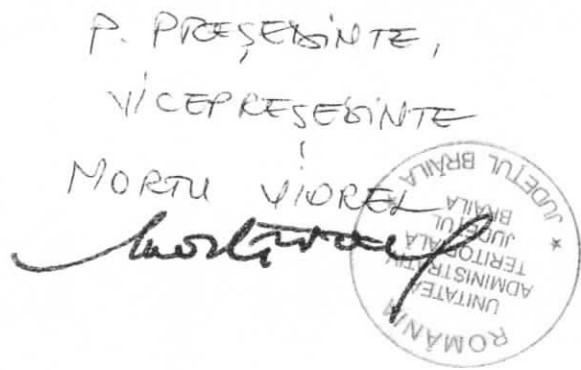 P. PREȘEDINTE,
VICEPREȘEDINTE
MORTU VIOREL
ROMÂNIA
* JUDEȚUL BRĂILA
UNITATEA
ADMINISTRATIV
TERITORIALĂ
JUDEȚUL
BRĂILA